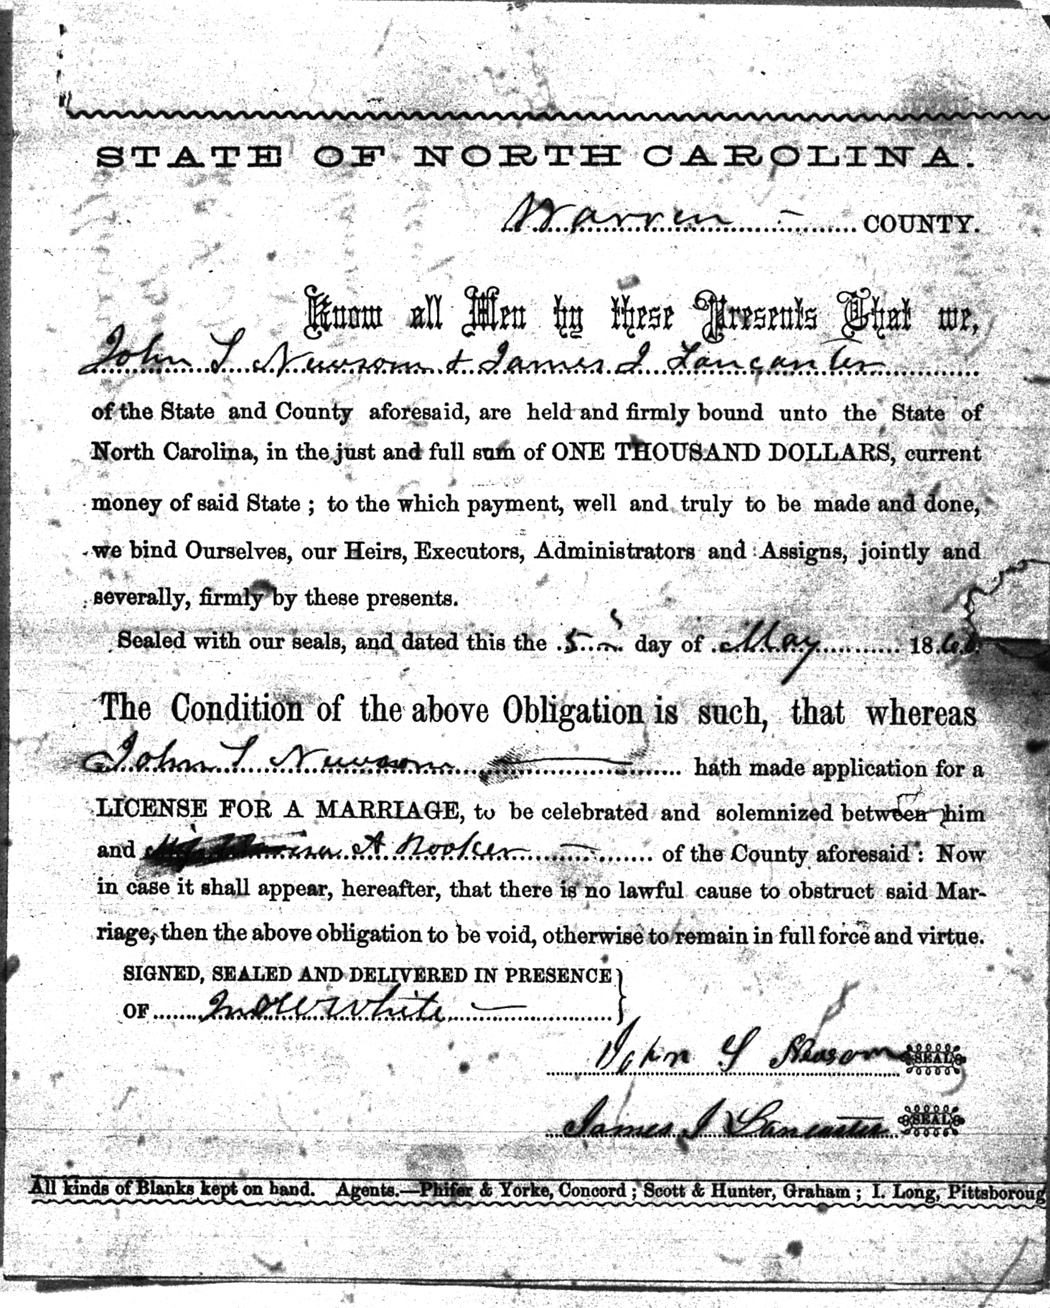 STATE OF NORTH CAROLINA.
Warren COUNTY.
Know all Men by these Presents That we,
John S Newsom & James J Lancaster
of the State and County aforesaid, are held and firmly bound unto the State of
North Carolina, in the just and full sum of ONE THOUSAND DOLLARS, current
money of said State ; to the which payment, well and truly to be made and done,
we bind Ourselves, our Heirs, Executors, Administrators and Assigns, jointly and
severally, firmly by these presents.
Sealed with our seals, and dated this the 5 day of May 186
The Condition of the above Obligation is such, that whereas
John S Newsom hath made application for a
LICENSE FOR A MARRIAGE, to be celebrated and solemnized between him
and A Rooker of the County aforesaid : Now
in case it shall appear, hereafter, that there is no lawful cause to obstruct said Mar-
riage, then the above obligation to be void, otherwise to remain in full force and virtue.
SIGNED, SEALED AND DELIVERED IN PRESENCE
OF White
John S Neasom SEAL
James J Lancaster SEAL
All kinds of Blanks kept on hand. Agents.—Phifer & Yorke, Concord ; Scott & Hunter, Graham ; I. Long, Pittsboroug